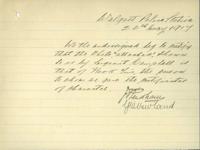 Walgett Police Station
22nd May 1917
We the undersigned beg to certify
that the Photo attached, shown
to us by Sergeant Campbell is
that of
the person
to whom we gave the certificates
of character.